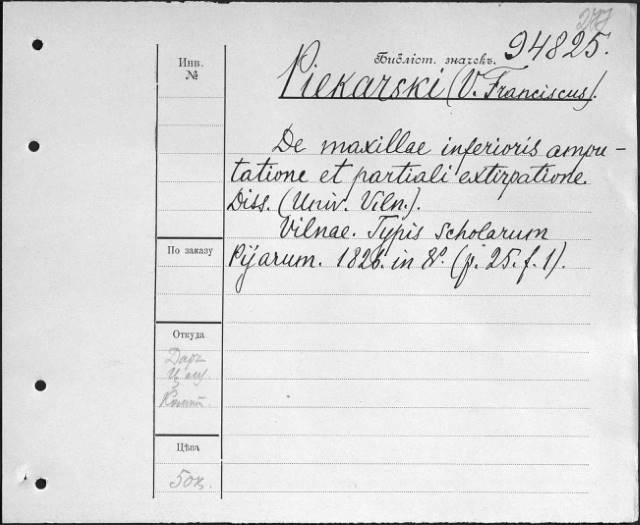 277
Библіот. значекъ. 94825.
Инв.
№
Piekarski (V. Franciscus).
De maxillae inferioris ampu-
tatione et partiali extirpatione.
Diss. (Univ. Viln.).
Vilnae. Typis Scholarum
Pijarum. 1826. in 8º. (p. 25. f. 1).
По заказу
Откуда
Даръ
Комит.
Цѣна
50к.